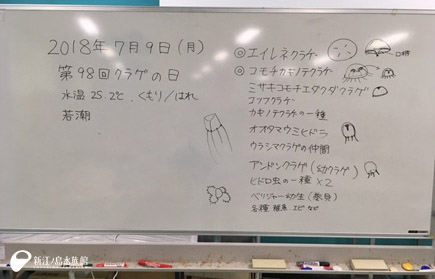 2018年7月9日(月)
第98回クラゲの日
水温25.2℃ くもり/はれ
若潮
◎エイレネクラゲ
口柄
◎コモチカギノテクラゲ
ミサキコモチエダクダクラゲ
コツブクラゲ
カギノテクラゲの一種
オオタマウミヒドラ
ウラシマクラゲの仲間
アンドンクラゲ(幼クラゲ)
ヒドロ虫の一種 ×2
ベリジャー幼生(巻貝)
各種 稚魚 エビ など
新江ノ島水族館